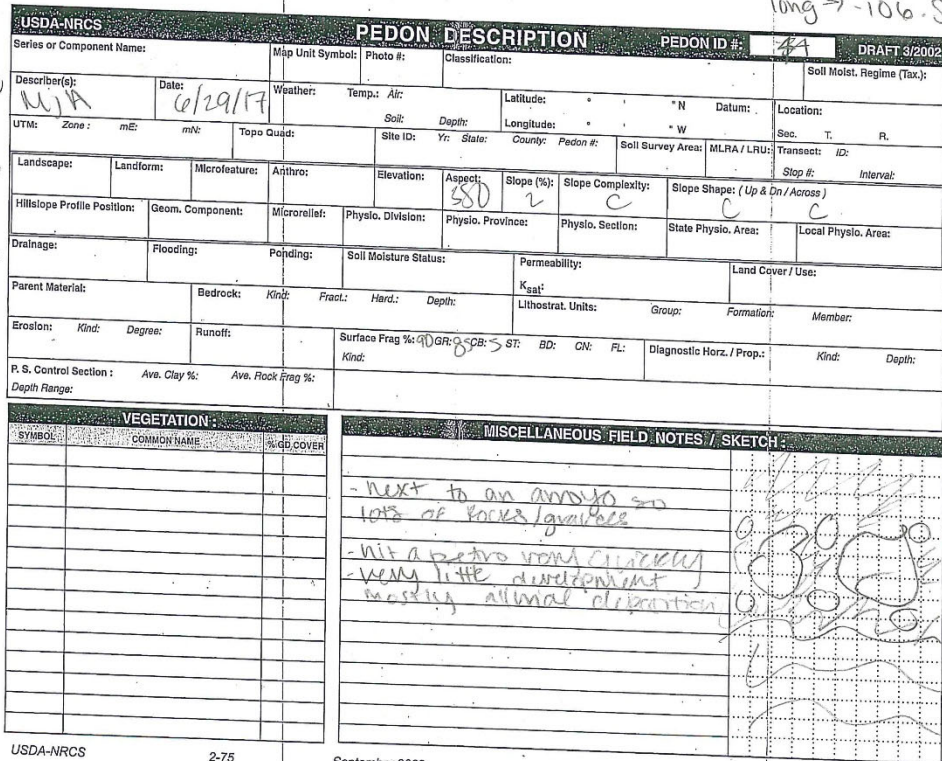 long → -106.5
USDA-NRCS PEDON DESCRIPTION PEDON ID #: 4A DRAFT 3/2002
Series or Component Name: Map Unit Symbol: Photo #: Classification: Soil Moist. Regime (Tax.):
Describer(s): MJA Date: 6/29/17 Weather: Temp.: Air: Latitude: ° ' " N Datum: Location:
Soil: Depth: Longitude: ° ' " W Sec. T. R.
UTM: Zone: mE: mN: Topo Quad: Site ID: Yr: State: County: Pedon #: Soil Survey Area: MLRA / LRU: Transect: ID:
Stop #: Interval:
Landscape: Landform: Microfeature: Anthro: Elevation: Aspect: 350 Slope (%): 2 Slope Complexity: C Slope Shape: ( Up & Dn / Across ) C C
Hillslope Profile Position: Geom. Component: Microrelief: Physio. Division: Physio. Province: Physio. Section: State Physio. Area: Local Physio. Area:
Drainage: Flooding: Ponding: Soil Moisture Status: Permeability: Land Cover / Use:
Ksat:
Parent Material: Bedrock: Kind: Fract.: Hard.: Depth: Lithostrat. Units: Group: Formation: Member:
Erosion: Kind: Degree: Runoff: Surface Frag %: 90 GR: 85 CB: 5 ST: BD: CN: FL: Diagnostic Horz. / Prop.: Kind: Depth:
Kind:
P. S. Control Section : Ave. Clay %: Ave. Rock Frag %:
Depth Range:
VEGETATION :
SYMBOL COMMON NAME % GD COVER
MISCELLANEOUS FIELD NOTES / SKETCH :
- next to an arroyo so
lots of rocks/gravels
- hit a petro very quickly
- very little development
mostly alluvial deposition
USDA-NRCS 2-75